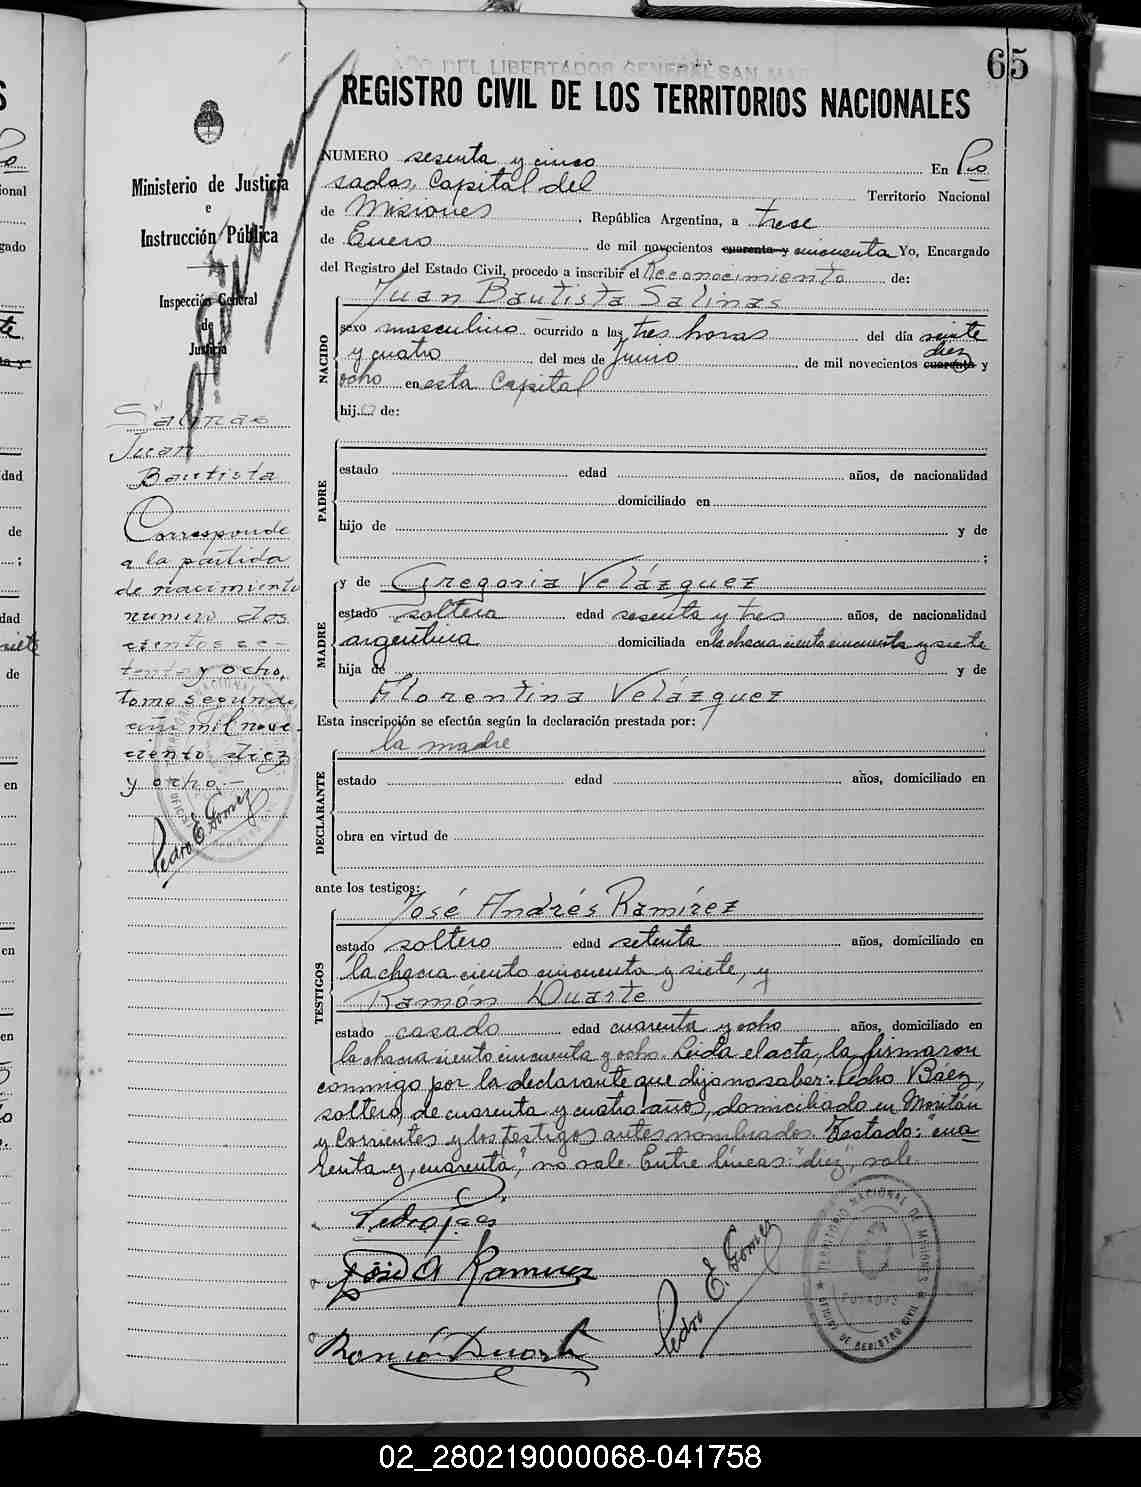 65
AÑO DEL LIBERTADOR GENERAL SAN MAR
REGISTRO CIVIL DE LOS TERRITORIOS NACIONALES
Ministerio de Justicia
e
Instrucción Pública
Inspección General
de
Justicia
Salinas
Juan
Bautista
Corresponde
a la partida
de nacimiento
número dos
cientos se-
tenta y ocho,
tomo segundo,
año mil nove-
ciento diez
y ocho.-
Pedro E. Gomez
NUMERO sesenta y cinco En Po
sadas, Capital del Territorio Nacional
de Misiones, República Argentina, a trece
de Enero de mil novecientos cuarenta y cincuenta Yo, Encargado
del Registro del Estado Civil, procedo a inscribir el Reconocimiento de:
Juan Bautista Salinas
NACIDO
sexo masculino ocurrido a las tres horas del día veinte
diez
y cuatro del mes de Junio de mil novecientos cuarenta y
ocho en esta Capital
hijo de:
PADRE
estado edad años, de nacionalidad
domiciliado en
hijo de y de
;
MADRE
y de Gregoria Velázquez
estado soltera edad sesenta y tres años, de nacionalidad
argentina domiciliada en la chacra ciento cincuenta y siete
hija de y de
Florentina Velázquez
Esta inscripción se efectúa según la declaración prestada por:
la madre
DECLARANTE
estado edad años, domiciliado en
obra en virtud de
ante los testigos:
TESTIGOS
José Andrés Ramírez
estado soltero edad setenta años, domiciliado en
la chacra ciento cincuenta y siete, y
Ramón Duarte
estado casado edad cuarenta y ocho años, domiciliado en
la chacra ciento cincuenta y ocho. Leida el acta, la firmaron
conmigo por la declarante que dijo no saber: Pedro Báez,
soltero, de cuarenta y cuatro años, domiciliado en Moritán
y Corrientes y los testigos antes nombrados. Testado: "cua
renta y, cuarenta", no vale. Entre líneas: "diez", vale.
José A Ramirez
Ramón Duarte
Pedro E. Gomez
TERRITORIO NACIONAL DE MISIONES
POSADAS
OFICINA DE REGISTRO CIVIL
02_280219000068-041758